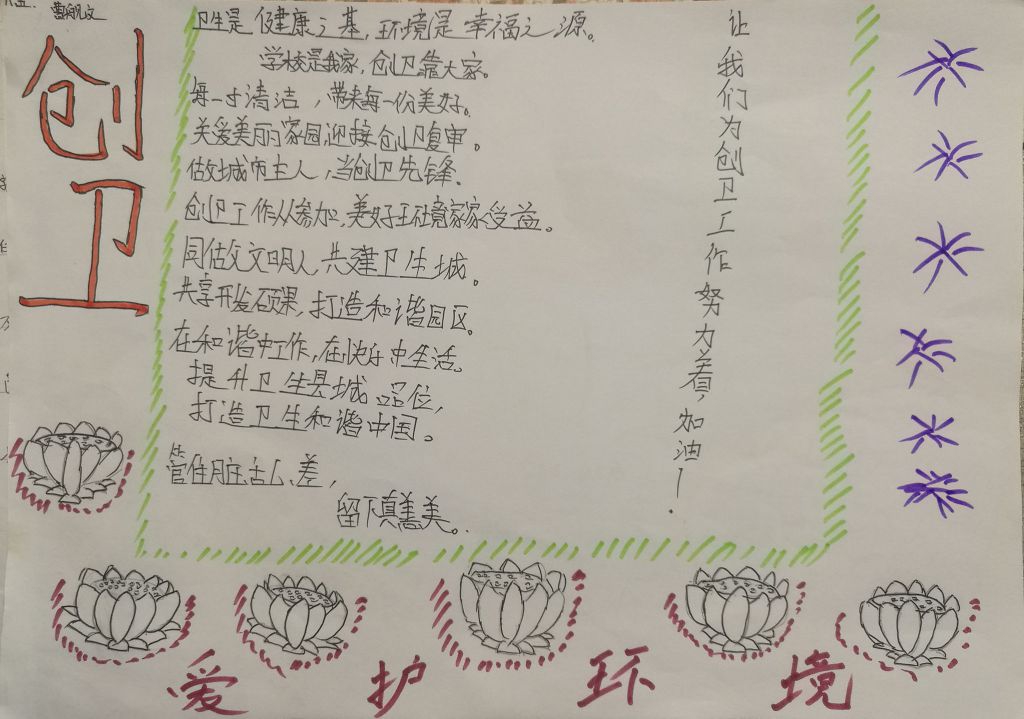 创卫
卫生是健康之基,环境是幸福之源。
学校是我家,创卫靠大家。
每一寸清洁,带来每一份美好。
关爱美丽家园,迎接创卫复审。
做城市主人,当创卫先锋.
创卫工作从参加,美好环境家家受益。
同做文文明人,共建卫生城。
共享开发硕果,打造和谐园区。
在和谐中工作,在快乐中生活。
提升卫生县城品位,
打造卫生和谐中国。
管住脏乱差,
留下真善美。
让我们为创卫工作努力着,加油!
爱护环境